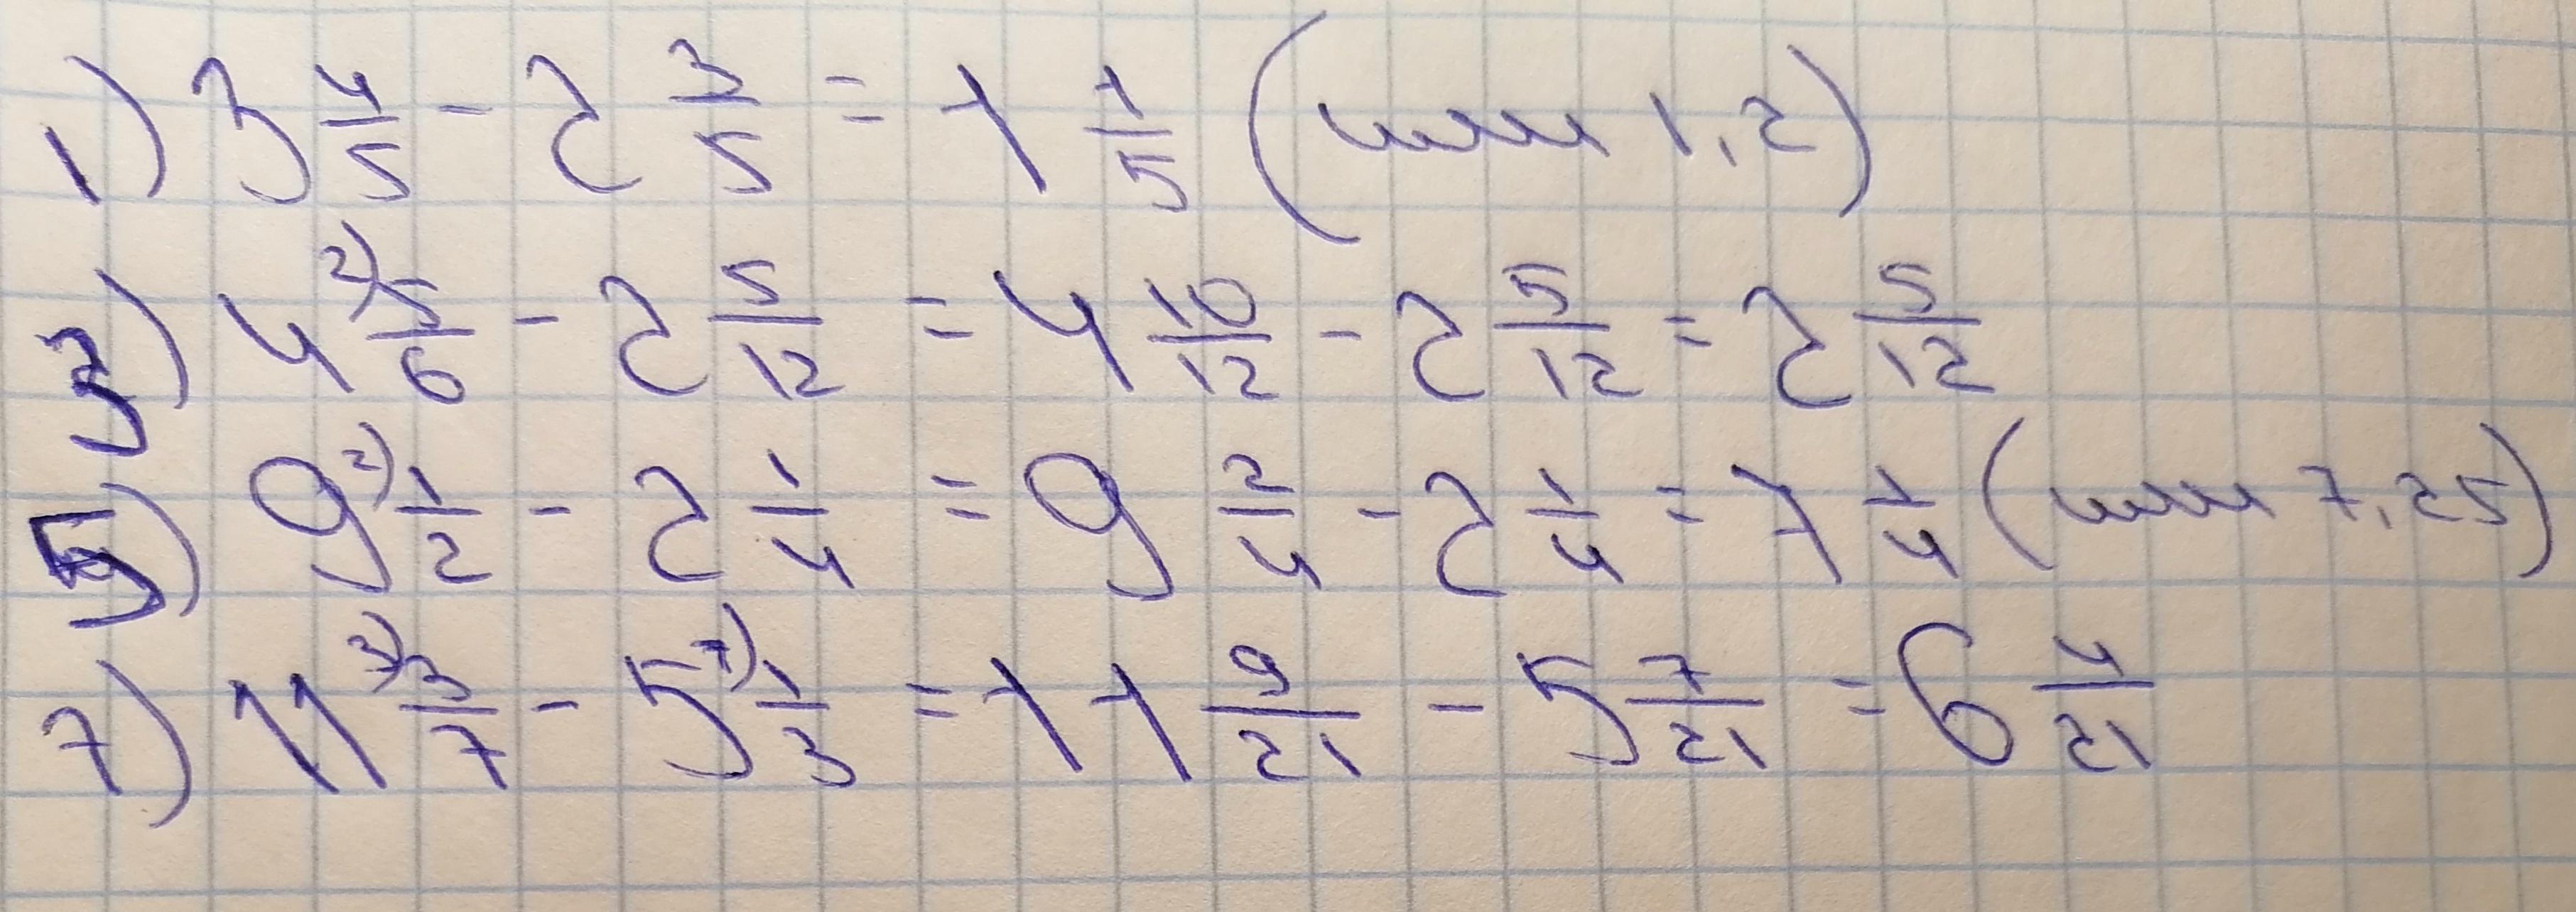 1) 3 4/5 - 2 3/5 = 1 1/5 (или 1,2)
3) 4 2) 5/6 - 2 5/12 = 4 10/12 - 2 5/12 = 2 5/12
5) 9 2) 1/2 - 2 1/4 = 9 2/4 - 2 1/4 = 7 1/4 (или 7,25)
7) 11 3) 3/7 - 5 7) 1/3 = 11 9/21 - 5 7/21 = 6 4/21